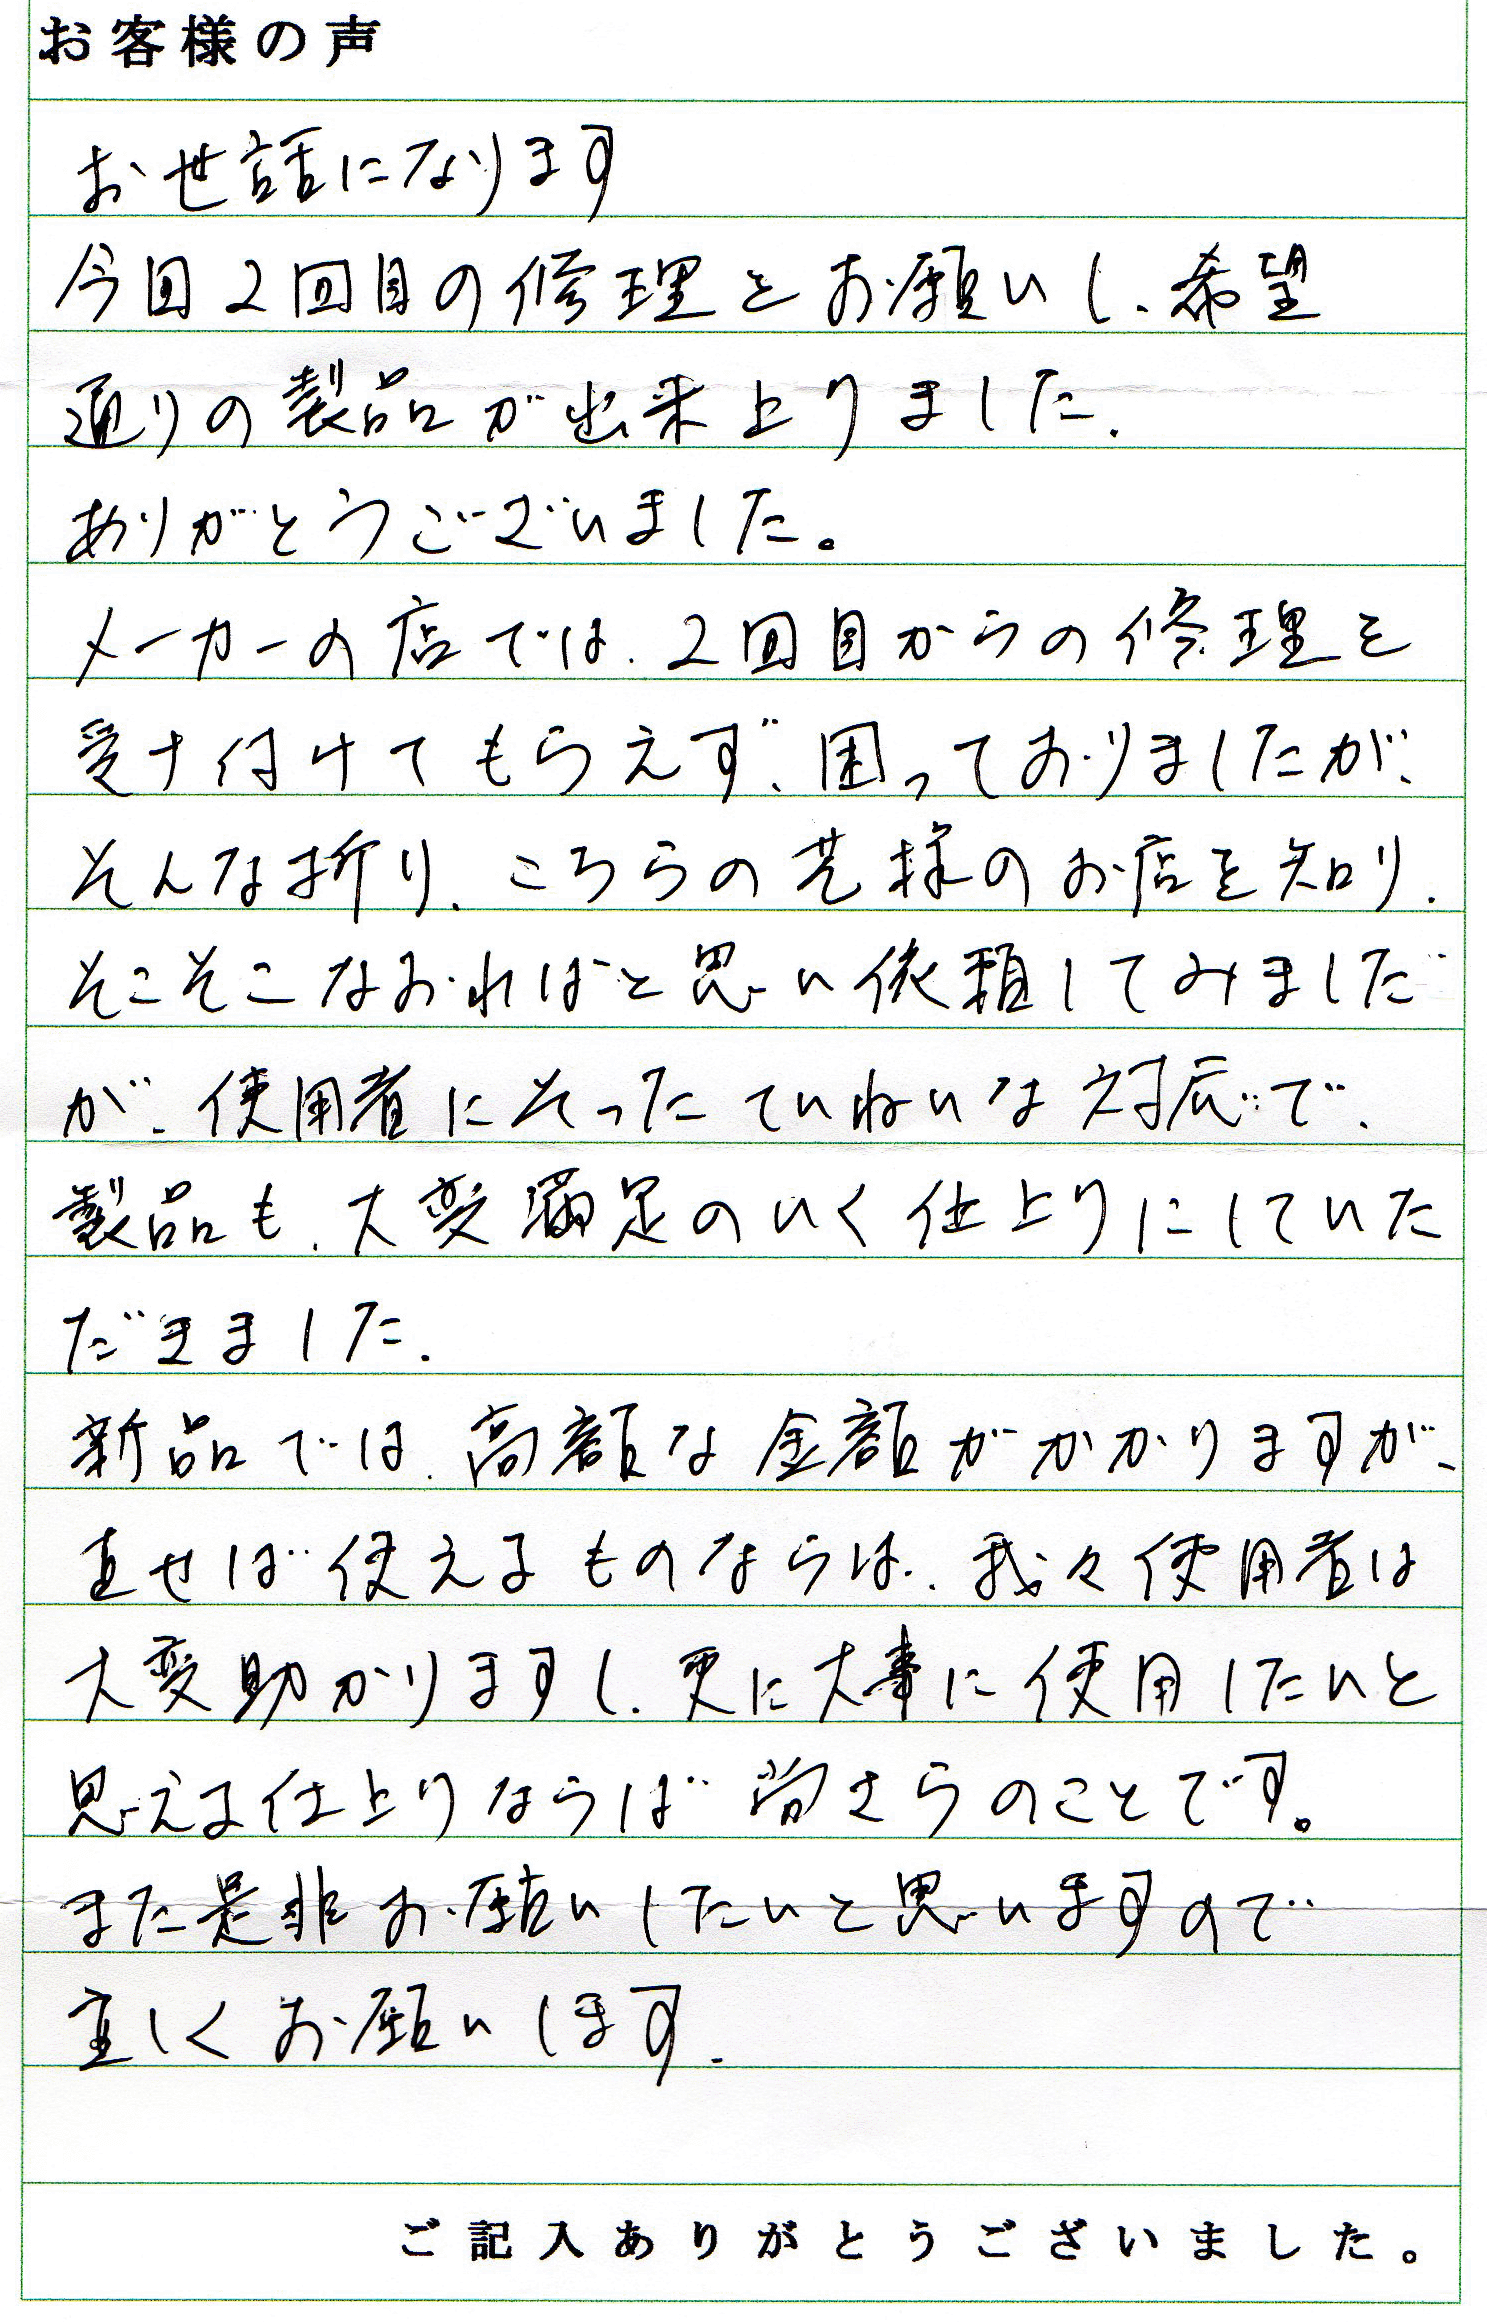 お客様の声
お世話になります
今回2回目の修理をお願いし、希望
通りの製品が出来上りました.
ありがとうございました。
メーカーの店では、2回目からの修理を
受け付けてもらえず、困っておりましたが、
そんな折り、こちらの様のお店を知り、
そこそこなおればと思い依頼してみました
が、使用者にそったていねいな対応で、
製品も、大変満足のいく仕上りにしていた
だきました.
新品では、高額な金額がかかりますが、
直せば使えるものならば、我々使用者は
大変助かりますし、更に大事に使用したいと
思える仕上りならば尚さらのことです。
また是非お願いしたいと思いますので
宜しくお願いします.
ご記入ありがとうございました。